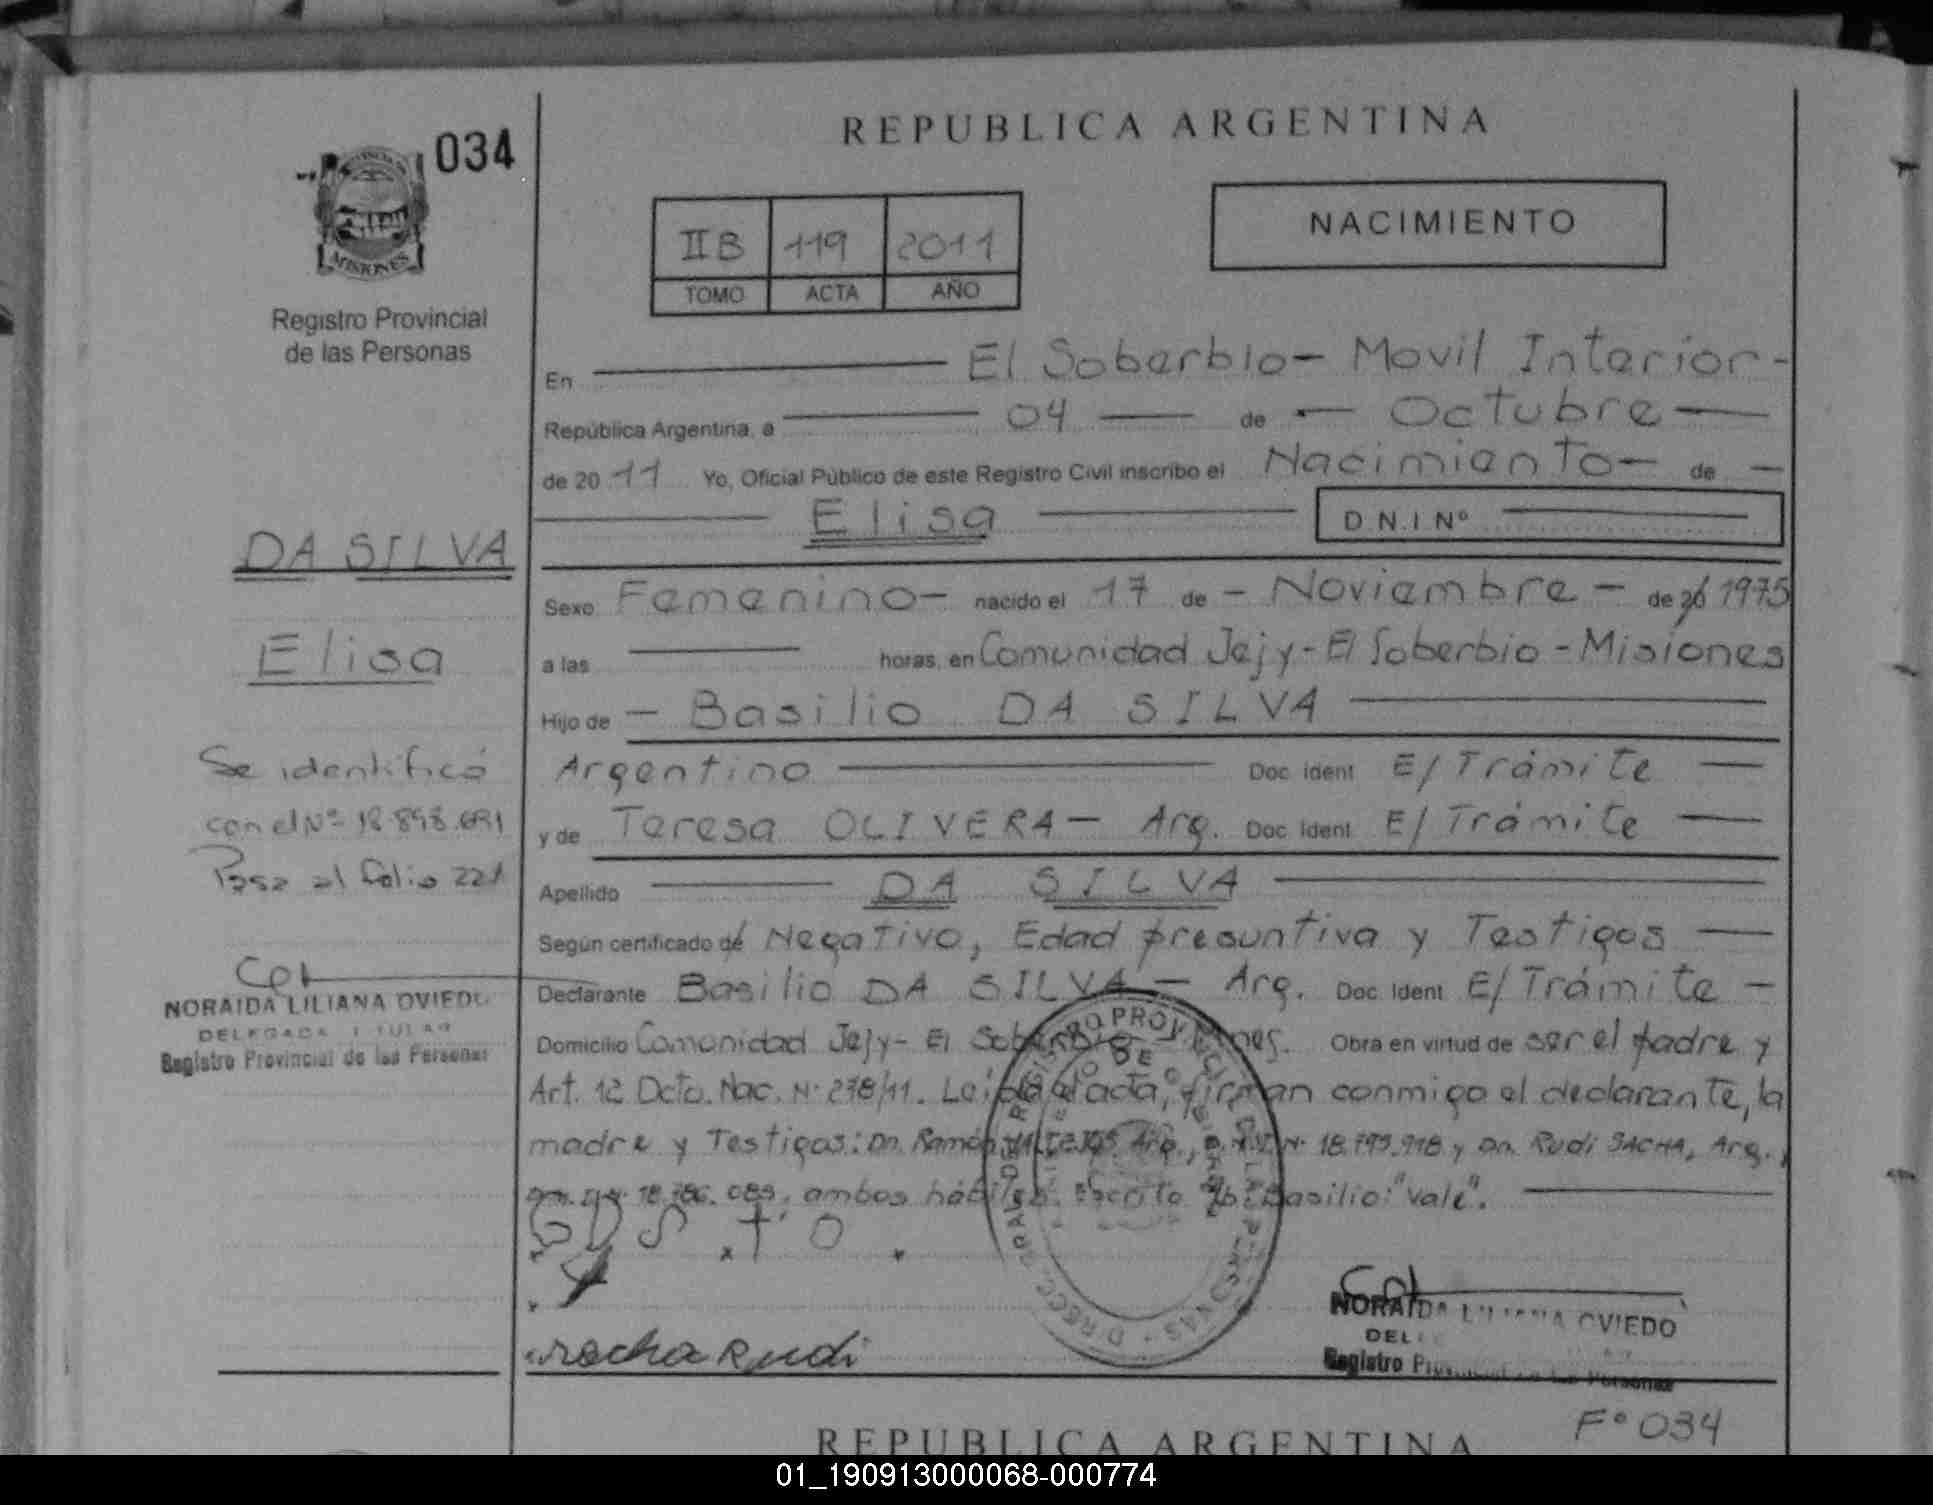 034
MISIONES
Registro Provincial
de las Personas
REPUBLICA ARGENTINA
IIB 119 2011
TOMO ACTA AÑO
NACIMIENTO
En El Soberbio - Movil Interior -
República Argentina, a 04 de Octubre
de 2011 Yo, Oficial Público de este Registro Civil inscribo el Nacimiento - de -
Elisa D.N.I Nº
Sexo Femenino - nacido el 17 de - Noviembre - de 20 1975
a las horas, en Comunidad Jejy - El Soberbio - Misiones
Hijo de - Basilio DA SILVA
Argentino Doc. ident E/Trámite
y de Teresa OLIVERA - Arg. Doc. Ident E/Trámite
Apellido DA SILVA
Según certificado de Negativo, Edad presuntiva y Testigos
Declarante Basilio DA SILVA - Arg. Doc. Ident E/Trámite -
Domicilio Comunidad Jejy - El Soberbio Obra en virtud de ser el padre y
Art. 12 Dcto. Nac. Nº 278/11. Leída el acta, firman conmigo el declarante, la
madre y Testigos: Dn. Ramón Arg., Nº 18.793.918 y Dn. Rudi SACHA, Arg.,
18.786.089, ambos hábiles. Escrito Basilio: "Vale".
DA SILVA
Elisa
Se identificó
con el Nº 18.898.691
Pasa al folio 221
NORAIDA LILIANA OVIEDO
DELEGADA TITULAR
Registro Provincial de las Personas
sacha Rudi
NORAIDA LILIANA OVIEDO
Registro Provincial de las Personas
Fº 034
REPUBLICA ARGENTINA
01_190913000068-000774